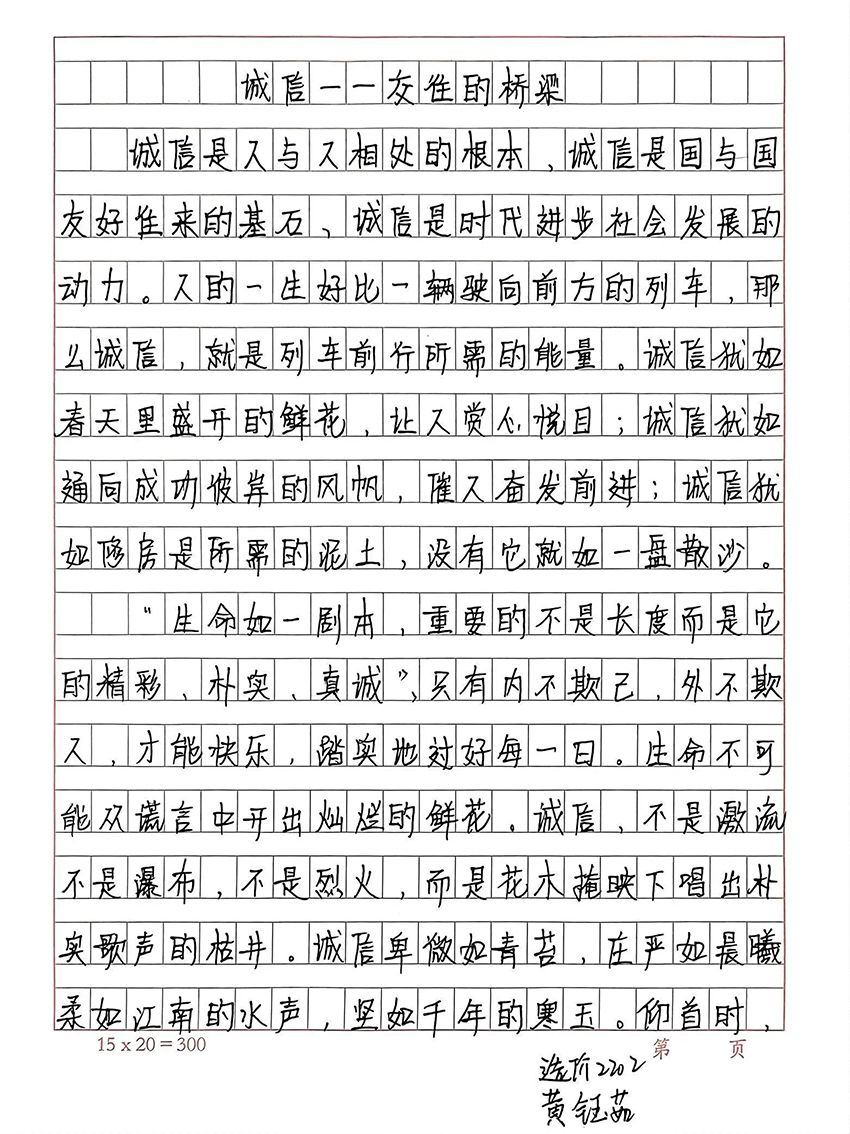 诚信一一交往的桥梁
诚信是人与人相处的根本，诚信是国与国
友好往来的基石、诚信是时代进步社会发展的
动力。人的一生好比一辆驶向前方的列车，那
么诚信，就是列车前行所需的能量。诚信犹如
春天里盛开的鲜花，让人赏心悦目；诚信犹如
通向成功彼岸的风帆，催人奋发前进；诚信犹
如修房是所需的泥土，没有它就如一盘散沙。
“生命如一剧本，重要的不是长度而是它
的精彩、朴实、真诚”、只有内不欺己，外不欺
人，才能快乐，踏实地过好每一日。生命不可
能从谎言中开出灿烂的鲜花。诚信，不是激流
不是瀑布，不是烈火，而是花木掩映下唱出朴
实歌声的枯井。诚信卑微如青苔，庄严如晨曦
柔如江南的水声，坚如千年的寒玉。仰首时，
15 x 20 = 300 第 页
造价2202
黄钰茹